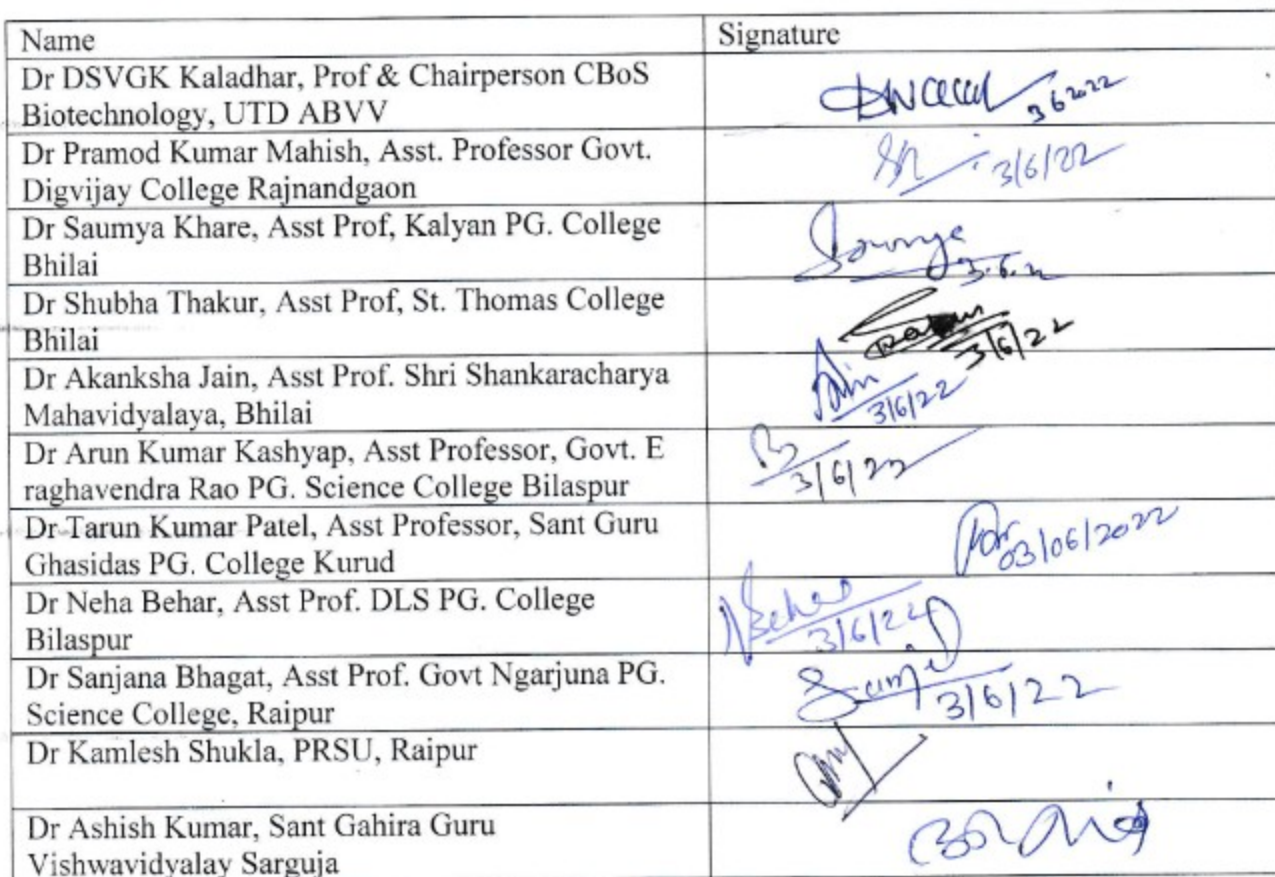 Name
Signature
Dr DSVGK Kaladhar, Prof & Chairperson CBoS
Biotechnology, UTD ABVV
3 6 2022
Dr Pramod Kumar Mahish, Asst. Professor Govt.
Digvijay College Rajnandgaon
3/6/22
Dr Saumya Khare, Asst Prof, Kalyan PG. College
Bhilai
Dr Shubha Thakur, Asst Prof, St. Thomas College
Bhilai
3/6/22
Dr Akanksha Jain, Asst Prof. Shri Shankaracharya
Mahavidyalaya, Bhilai
3/6/22
Dr Arun Kumar Kashyap, Asst Professor, Govt. E
raghavendra Rao PG. Science College Bilaspur
3/6/22
Dr Tarun Kumar Patel, Asst Professor, Sant Guru
Ghasidas PG. College Kurud
03/06/2022
Dr Neha Behar, Asst Prof. DLS PG. College
Bilaspur
NBehar
3/6/22
Dr Sanjana Bhagat, Asst Prof. Govt Ngarjuna PG.
Science College, Raipur
3/6/22
Dr Kamlesh Shukla, PRSU, Raipur
Dr Ashish Kumar, Sant Gahira Guru
Vishwavidyalay Sarguja